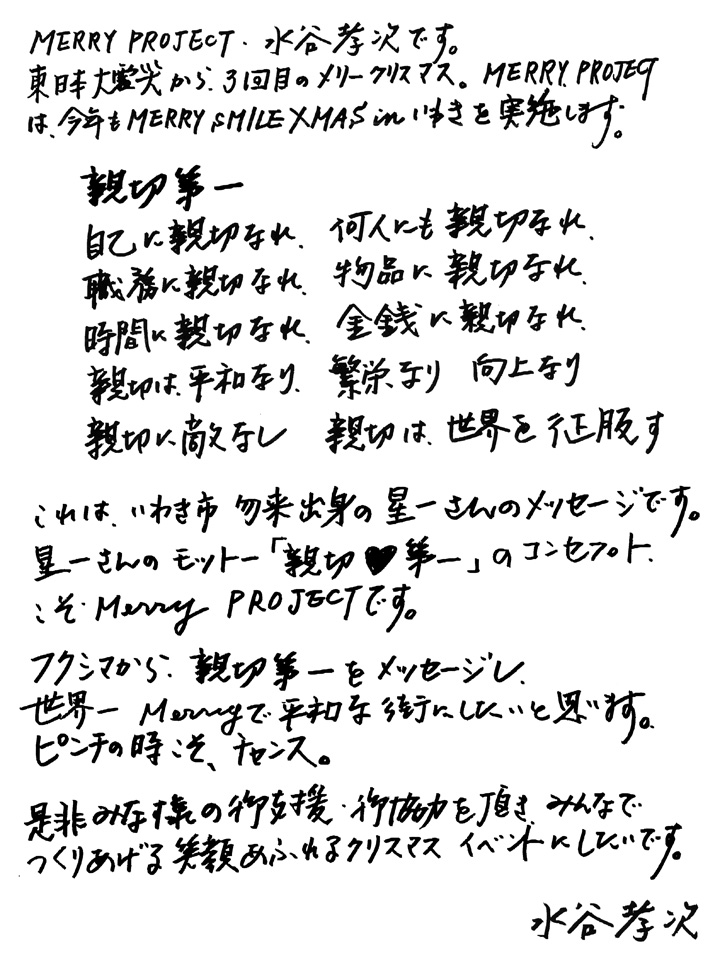 MERRY PROJECT・水谷孝次です。
東日本大震災から、3回目のメリークリスマス。MERRY PROJECT
は、今年もMERRY SMILE XMAS in いわきを実施します。
親切第一
自己に親切なれ、何人にも親切なれ、
職務に親切なれ、物品に親切なれ、
時間に親切なれ、金銭に親切なれ、
親切は、平和なり、繁栄なり 向上なり
親切に敵なし 親切は、世界を征服す
これは、いわき市 勿来出身の星一さんのメッセージです。
星一さんのモットー「親切♥第一」のコンセプト、
こそ・Merry PROJECTです。
フクシマから、親切第一をメッセージし、
世界一 Merryで平和な街にしたいと思います。
ピンチの時こそ、チャンス。
是非みな様の御支援・御協力を頂き、みんなで
つくりあげる笑顔あふれるクリスマス イベントにしたいです。
水谷孝次